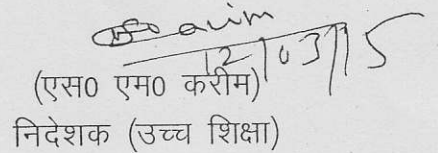 12/03/15
(एस0 एम0 करीम)
निदेशक (उच्च शिक्षा)